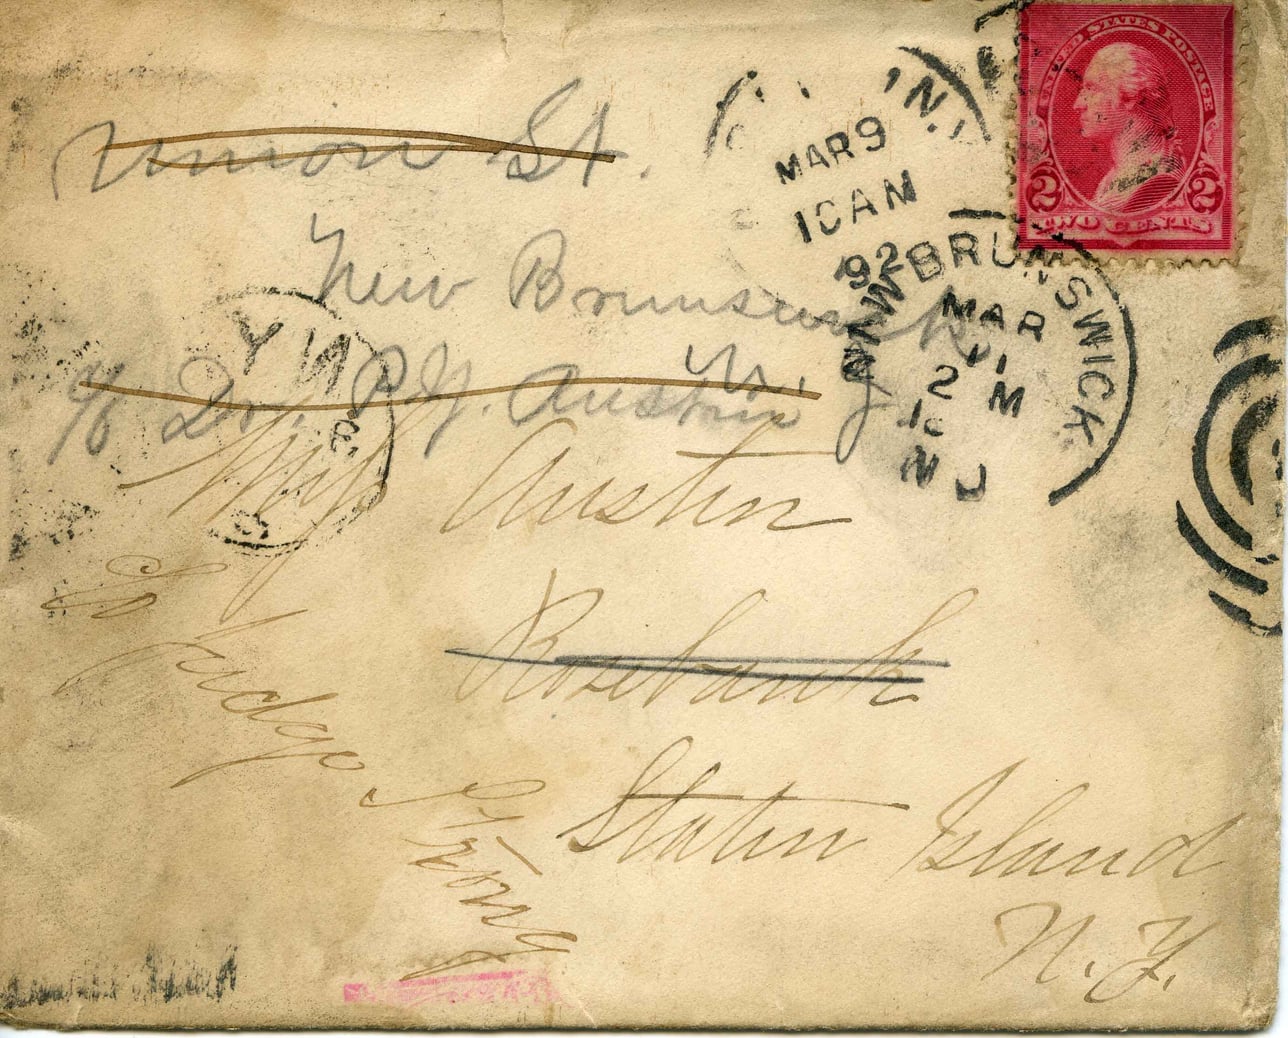 UNITED STATES POSTAGE
2 2
TWO CENTS
IN.
MAR 9
10 AM
92
NEW BRUNSWICK
MAR
11
2 M
N J
Union St.
New Brunswick
N. J.
c/o Dr. P. Y. Austin
N Y
Miss Austin
Rosebank
Staten Island
N. Y.
Judge Strong